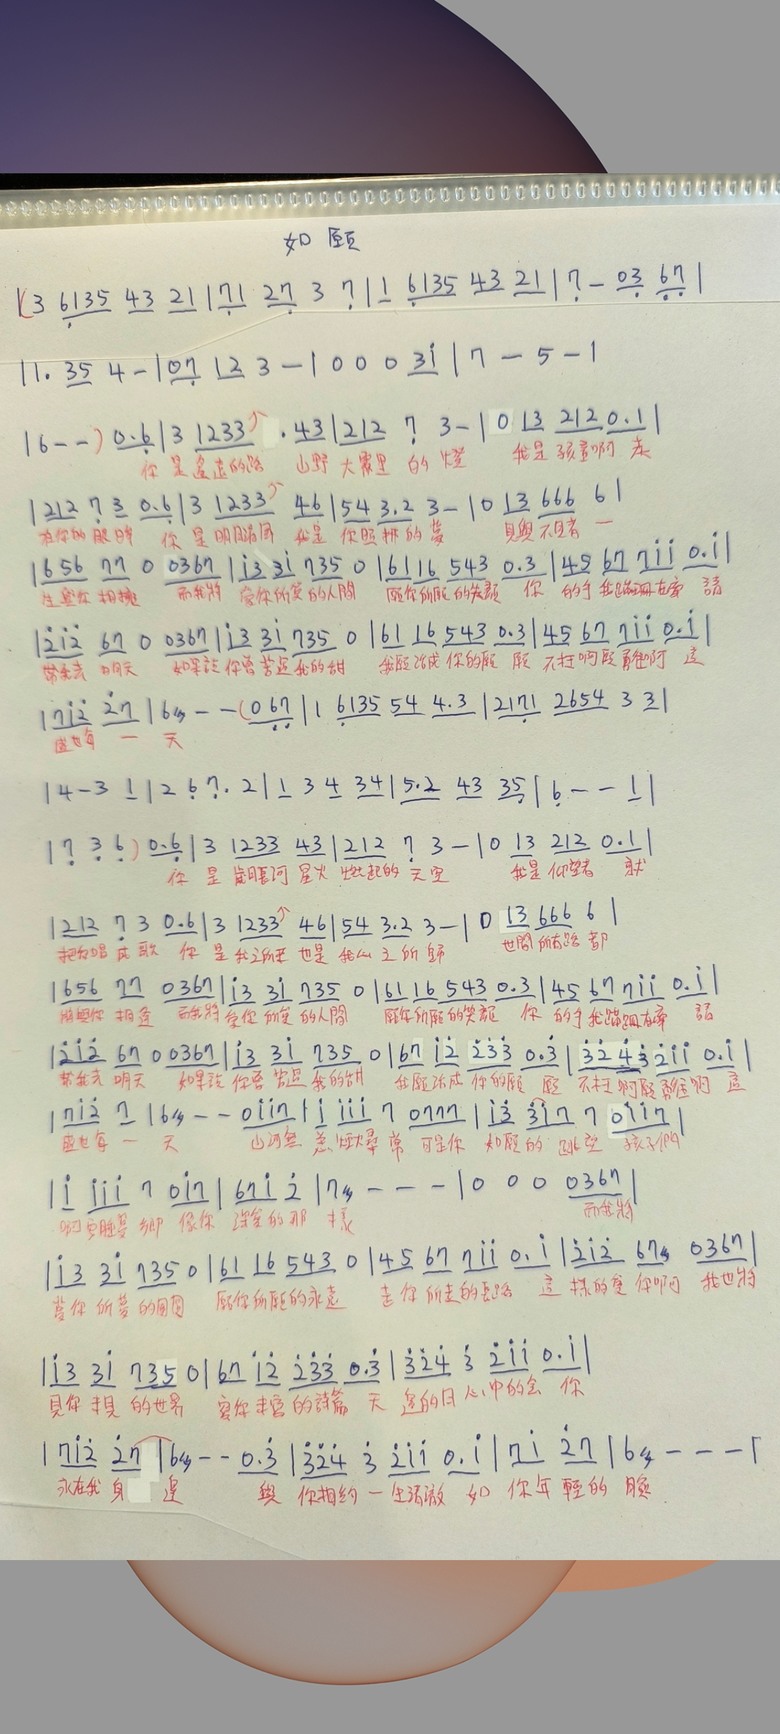 如願
|(3 6135 43 21|71 27 3 7|1 6135 43 21|7 – 03 67|
|1. 35 4 –|07 12 3 –|0 0 0 31|7 – 5 –|
|6 – –) 0.6|3 1233 . 43|212 7 3 –|0 13 212 0.1|
你 是 遙遠的路 山野 大霧里 的 燈 我是 孩童啊 走
|212 7 3 0.6|3 1233 46|54 3.2 3 –|0 13 666 6|
在你的 眼眸 你 是 明月清風 我是 你照拂的 夢 見與 不見者 一
|656 77 0 0367|13 31 735 0|61 16 543 0.3|45 67 711 0.1|
生與你 相擁 而我將 愛你所愛的人間 願你所願的笑顏 你 的手 我蹣跚在牽 請
|212 67 0 0367|13 31 735 0|61 16 543 0.3|45 67 711 0.1|
帶我去 明天 如果說 你曾苦過 我的甜 我願活成 你的願 願 不枉啊 願勇往啊 這
|712 27|6 – – (067|1 6135 54 4.3|2171 2654 3 3|
盛世每 一 天
|4 – 3 1|2 6 7. 2|1 3 4 34|5.2 43 35|6 – – 1|
|7 3 6) 0.6|3 1233 43|212 7 3 –|0 13 212 0.1|
你 是 歲月河 星火 燃起的 天空 我是 仰望者 就
|212 7 3 0.6|3 1233 46|54 3.2 3 –|0 13 666 6|
把你唱 成 歌 你 是 我之所來 也是 我心 之 所 歸 世間 所有路 都
|656 77 0367|13 31 735 0|61 16 543 0.3|45 67 711 0.1|
將與你 相逢 而我將 愛你 所愛 的人間 願你所願的笑顏 你 的手 我蹣跚在牽 請
|212 67 0 0367|13 31 735 0|67 12 233 0.3|324 3 211 0.1|
帶我去 明天 如果說 你曾 苦過 我的甜 我願活成 你的願 願 不枉啊 願勇往啊 這
|712 7|6 – – 0117|1 111 7 0777|13 317 7 0117|
盛世每 一 天 山河無 恙 煙火尋 常 可是你 如願的 眺望 孩子們
|1 111 7 017|671 2|7 – – –|0 0 0 0367|
啊安睡夢 鄉 像你 深愛的那 樣 而我將
|13 31 735 0|61 16 543 0|45 67 711 0.1|212 67 0367|
夢你 所夢 的團圓 願你所願的永遠 走你 所走的長路 這 樣的愛 你啊 我也將
|13 31 735 0|67 12 233 0.3|324 3 211 0.1|
見你 未見 的世界 寫你 未寫 的詩篇 天 邊的月 心中的念 你
|712 27|6 – – 0.3|324 3 211 0.1|71 27|6 – – –|
永在我 身 邊 與 你相約 一 生清澈 如 你年 輕的 臉